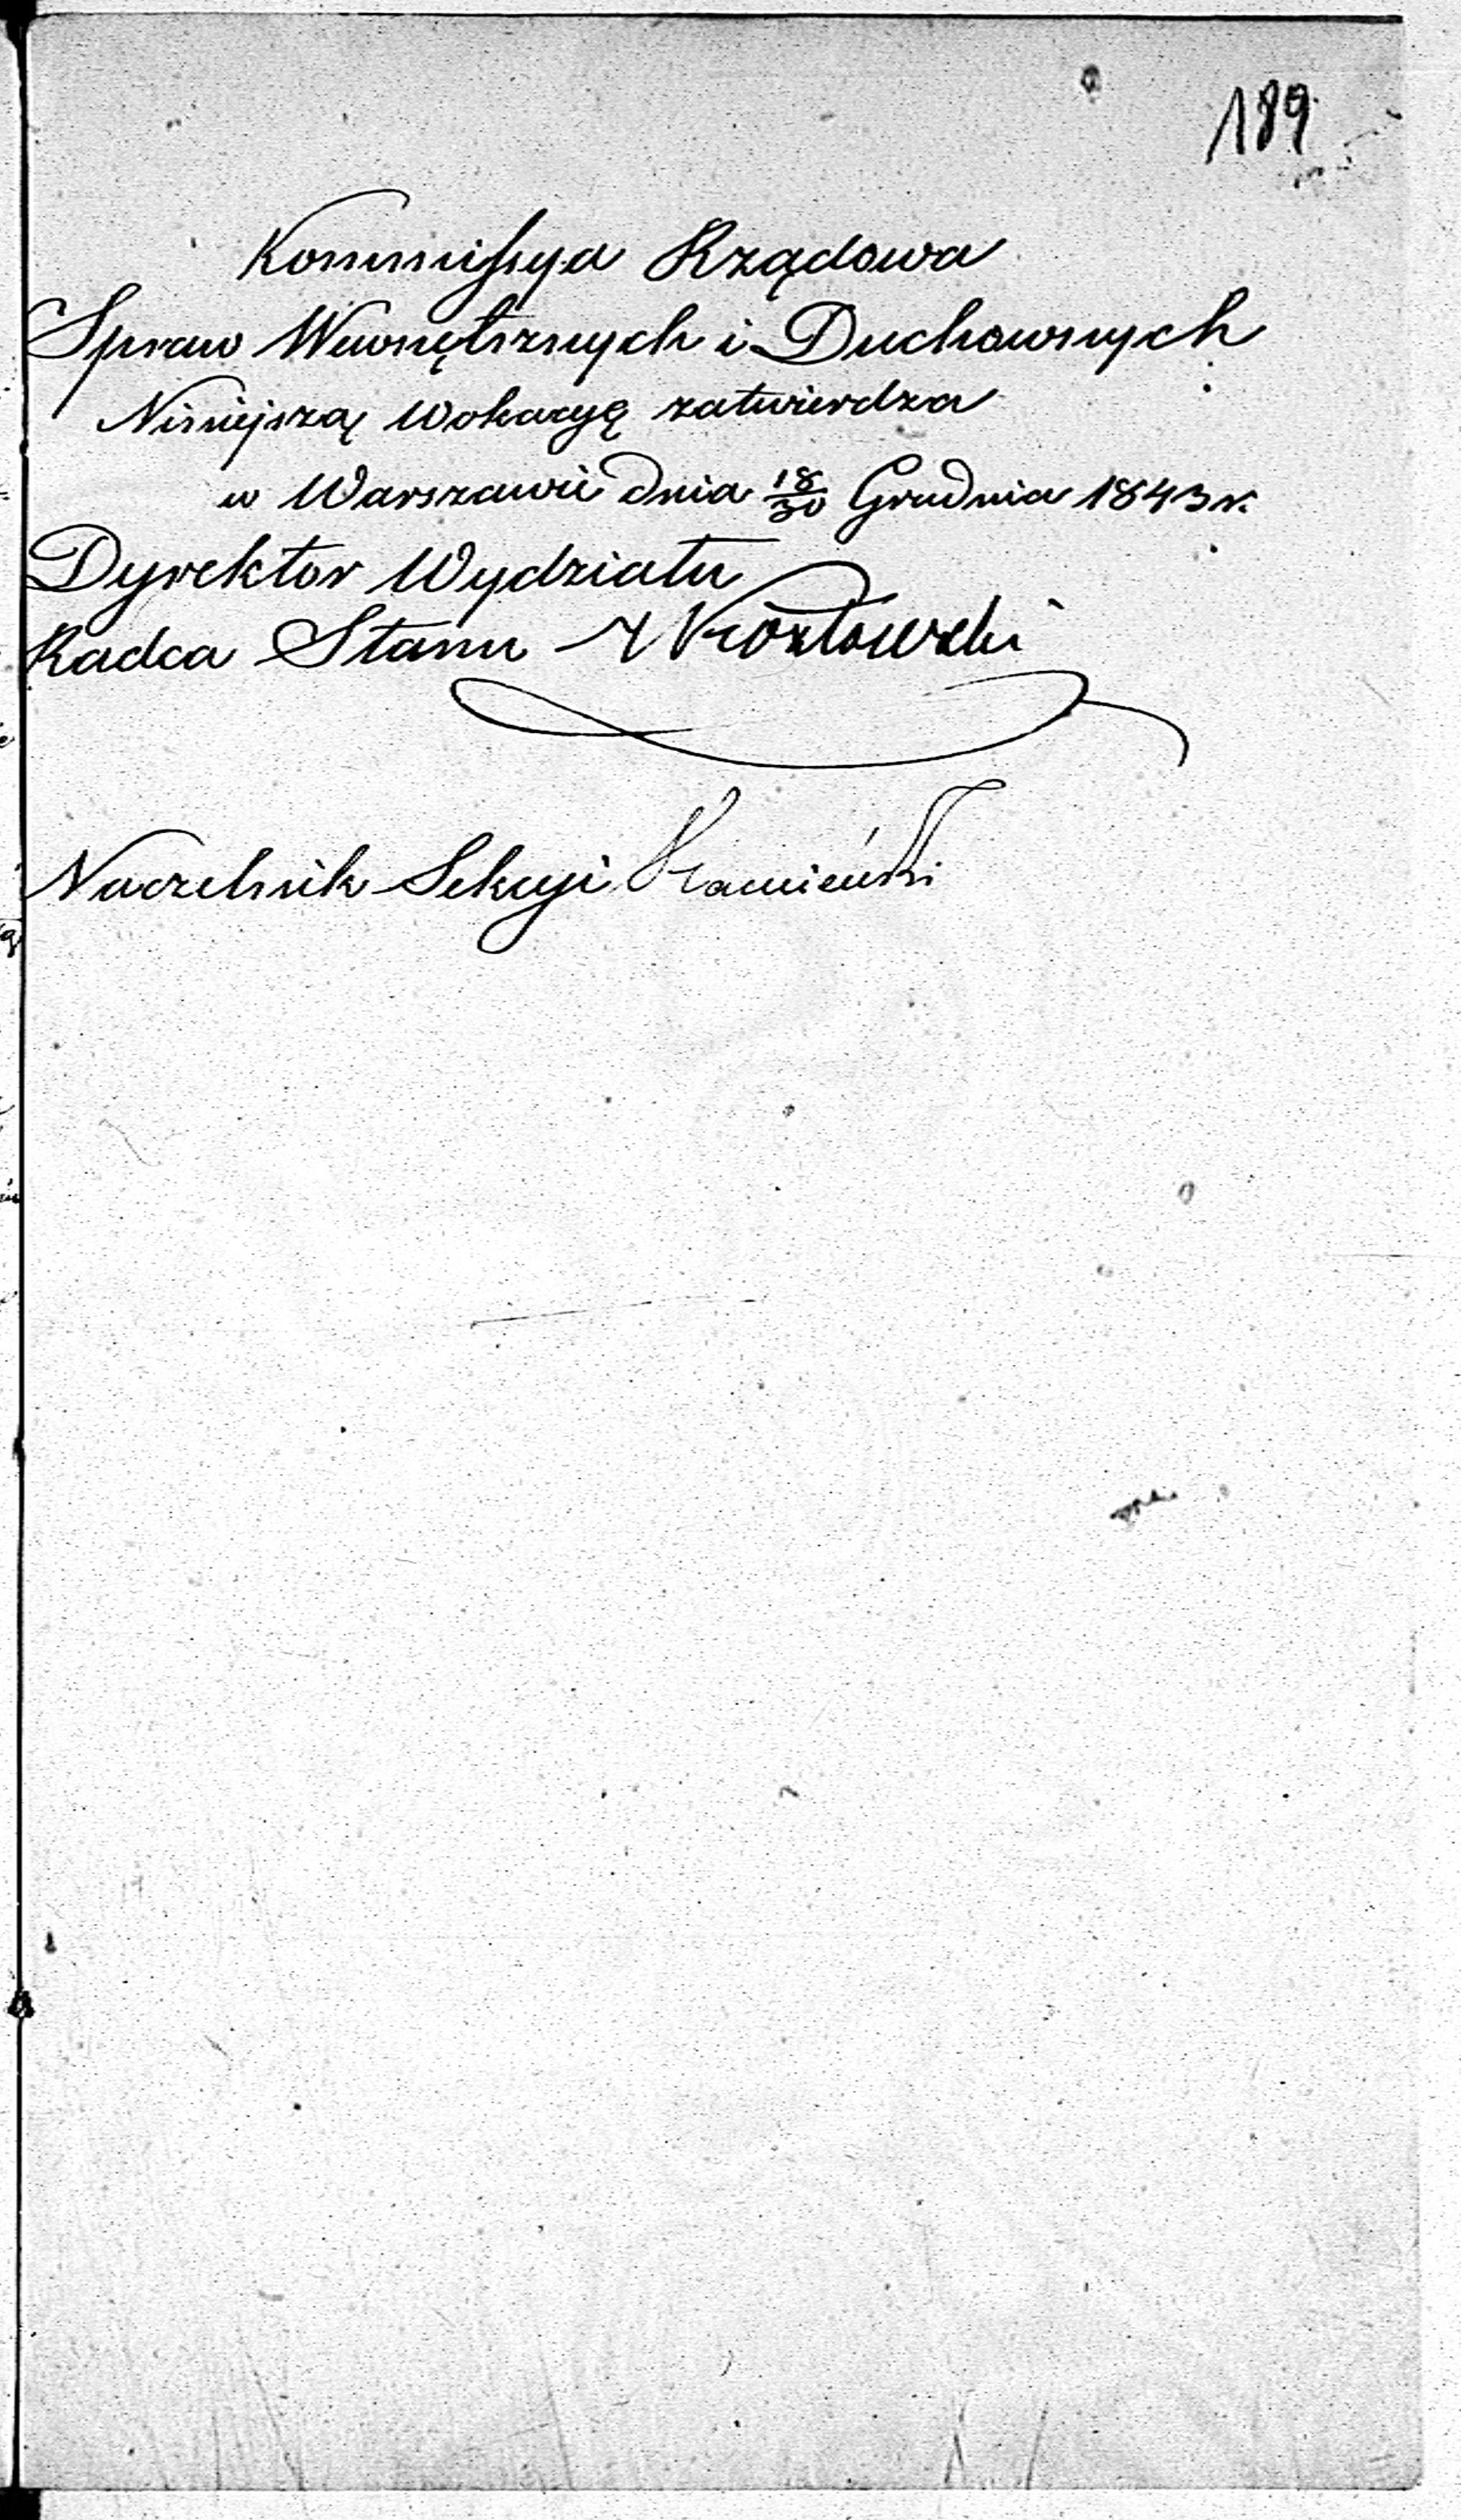 189
Kommissya Rządowa
Spraw Wewnętrznych i Duchownych
Niniejszą Wokacyę zatwierdza
w Warszawie dnia 18/30 Grudnia 1843 r.
Dyrektor Wydziału
Radca Stanu Kozłowski
Naczelnik Sekcyi Kamieński